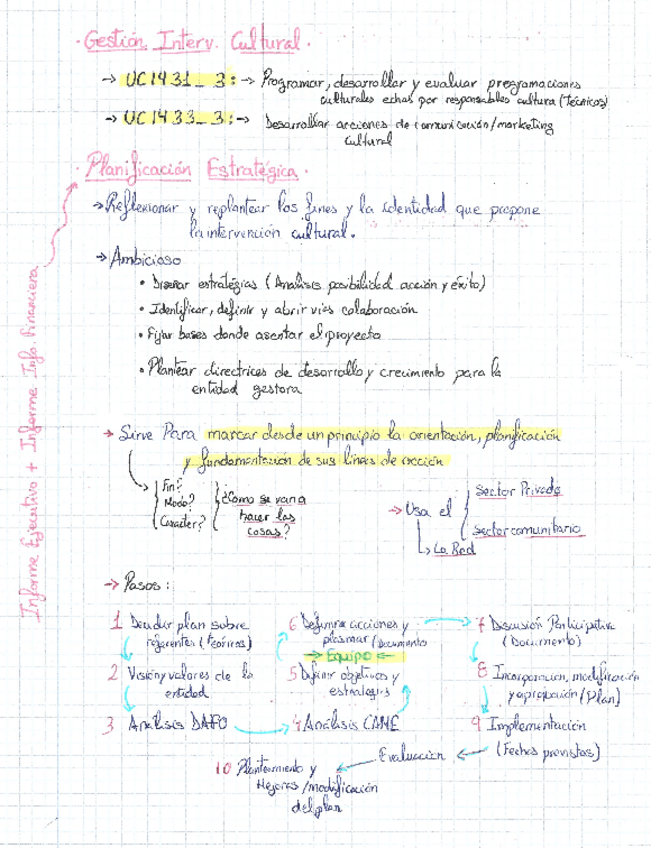 · Gestión Interv. Cultural ·
→ UC1431_3: → Programar, desarrollar y evaluar programaciones
culturales echas por responsables cultura (técnicos)
→ UC1433_3: → Desarrollar acciones de comunicación/marketing
cultural
· Planificación Estratégica ·
→ Reflexionar y replantear los fines y la identidad que propone
la intervención cultural.
→ Ambicioso
• Diseñar estratégias (Analisis posibilidad acción y éxito)
• Identificar, definir y abrir vías colaboración
• Fijar bases donde asentar el proyecto
• Plantear directrices de desarrollo y crecimiento para la
entidad gestora
Informe Ejecutivo + Informe Info. Financiera
→ Sirve Para marcar desde un principio la orientación, planificación
y fundamentación de sus líneas de acción
Fin?
Modo?
Caracter?
¿Como se van a
hacer las
cosas?
→ Usa el
Sector Privado
sector comunitario
↳ La Red
→ Pasos:
1 Decidir plan sobre
referentes (teóricos)
2 Visión y valores de la
entidad
3 Analisis DAFO
4 Analisis CAME
5 Definir objetivos y
estrategias
→ Equipo ←
6 Definir acciones y
plasmar (Documento
7 Discusión Participativa
(Documento)
8 Incorporación, modificación
y aprobación (Plan)
9 Implementación
(Fechas previstas)
Evaluacion
10 Planteamiento y
Mejoras/modificación
del plan